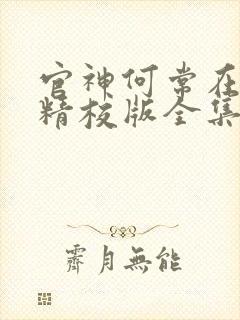 官神何常在
精校版全集
霽月無能